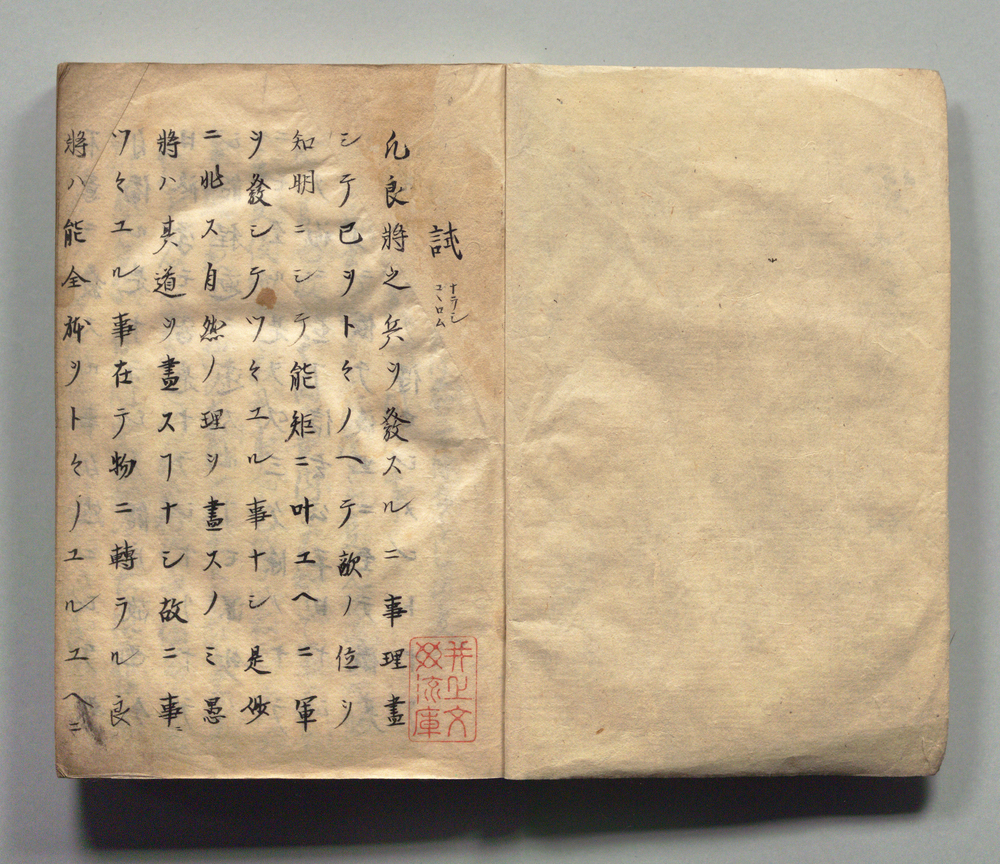 試 ナラシ コヽロム
凡良將之兵ヲ發スルニ事理盡
シテ已ヲトヽノヘテ敵ノ位ヲ
知明ニシテ能矩ニ叶エヘニ軍
ヲ發シテツヽエル事ナシ是
ニ非ス自然ノ理ヲ盡スノミ愚
將ハ其道ヲ盡スヿナシ故ニ事ニ
ツヽエル事在テ物ニ轉ラル良
將ハ能全ヲトヽノエルユヘニ
井上文庫